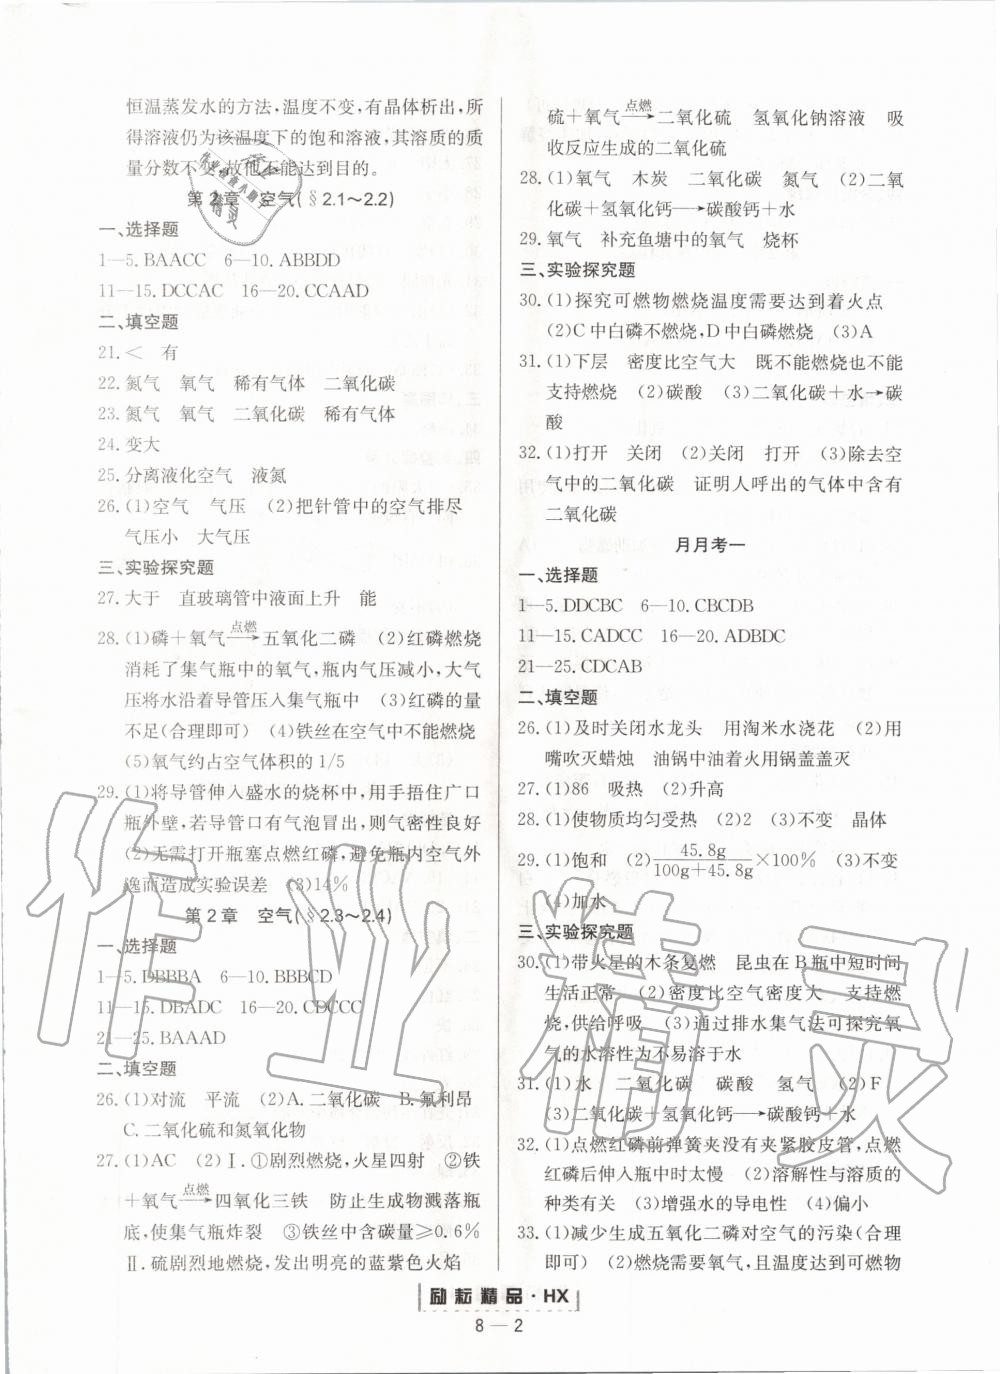 恒温蒸发水的方法,温度不变,有晶体析出,所
得溶液仍为该温度下的饱和溶液,其溶质的质
量分数不变,故他不能达到目的。
第2章 空气(§2.1～2.2)
一、选择题
1—5. BAACC 6—10. ABBDD
11—15. DCCAC 16—20. CCAAD
二、填空题
21. < 有
22. 氮气 氧气 稀有气体 二氧化碳
23. 氮气 氧气 二氧化碳 稀有气体
24. 变大
25. 分离液化空气 液氮
26. (1)空气 气压 (2)把针管中的空气排尽
气压小 大气压
三、实验探究题
27. 大于 直玻璃管中液面上升 能
28. (1)磷+氧气 点燃→ 五氧化二磷 (2)红磷燃烧
消耗了集气瓶中的氧气,瓶内气压减小,大气
压将水沿着导管压入集气瓶中 (3)红磷的量
不足(合理即可) (4)铁丝在空气中不能燃烧
(5)氧气约占空气体积的1/5
29. (1)将导管伸入盛水的烧杯中,用手捂住广口
瓶外壁,若导管口有气泡冒出,则气密性良好
(2)无需打开瓶塞点燃红磷,避免瓶内空气外
逸而造成实验误差 (3)14%
第2章 空气(§2.3～2.4)
一、选择题
1—5. DBBBA 6—10. BBBCD
11—15. DBADC 16—20. CDCCC
21—25. BAAAD
二、填空题
26. (1)对流 平流 (2)A. 二氧化碳 B. 氟利昂
C. 二氧化硫和氮氧化物
27. (1)AC (2)Ⅰ. ①剧烈燃烧,火星四射 ②铁
+氧气 点燃→ 四氧化三铁 防止生成物溅落瓶
底,使集气瓶炸裂 ③铁丝中含碳量≥0.6%
Ⅱ. 硫剧烈地燃烧,发出明亮的蓝紫色火焰
硫+氧气 点燃→ 二氧化硫 氢氧化钠溶液 吸
收反应生成的二氧化硫
28. (1)氧气 木炭 二氧化碳 氮气 (2)二氧
化碳+氢氧化钙→碳酸钙+水
29. 氧气 补充鱼塘中的氧气 烧杯
三、实验探究题
30. (1)探究可燃物燃烧温度需要达到着火点
(2)C中白磷不燃烧,D中白磷燃烧 (3)A
31. (1)下层 密度比空气大 既不能燃烧也不能
支持燃烧 (2)碳酸 (3)二氧化碳+水→碳
酸
32. (1)打开 关闭 (2)关闭 打开 (3)除去空
气中的二氧化碳 证明人呼出的气体中含有
二氧化碳
月月考一
一、选择题
1—5. DDCBC 6—10. CBCDB
11—15. CADCC 16—20. ADBDC
21—25. CDCAB
二、填空题
26. (1)及时关闭水龙头 用淘米水浇花 (2)用
嘴吹灭蜡烛 油锅中油着火用锅盖盖灭
27. (1)86 吸热 (2)升高
28. (1)使物质均匀受热 (2)2 (3)不变 晶体
29. (1)饱和 (2) 45.8g/(100g+45.8g) ×100% (3)不变
(4)加水
三、实验探究题
30. (1)带火星的木条复燃 昆虫在B瓶中短时间
生活正常 (2)密度比空气密度大 支持燃
烧,供给呼吸 (3)通过排水集气法可探究氧
气的水溶性为不易溶于水
31. (1)水 二氧化碳 碳酸 氢气 (2)F
(3)二氧化碳+氢氧化钙→碳酸钙+水
32. (1)点燃红磷前弹簧夹没有夹紧胶皮管,点燃
红磷后伸入瓶中时太慢 (2)溶解性与溶质的
种类有关 (3)增强水的导电性 (4)偏小
33. (1)减少生成五氧化二磷对空气的污染(合理
即可) (2)燃烧需要氧气,且温度达到可燃物
励耘精品·HX
8 — 2
作业精灵